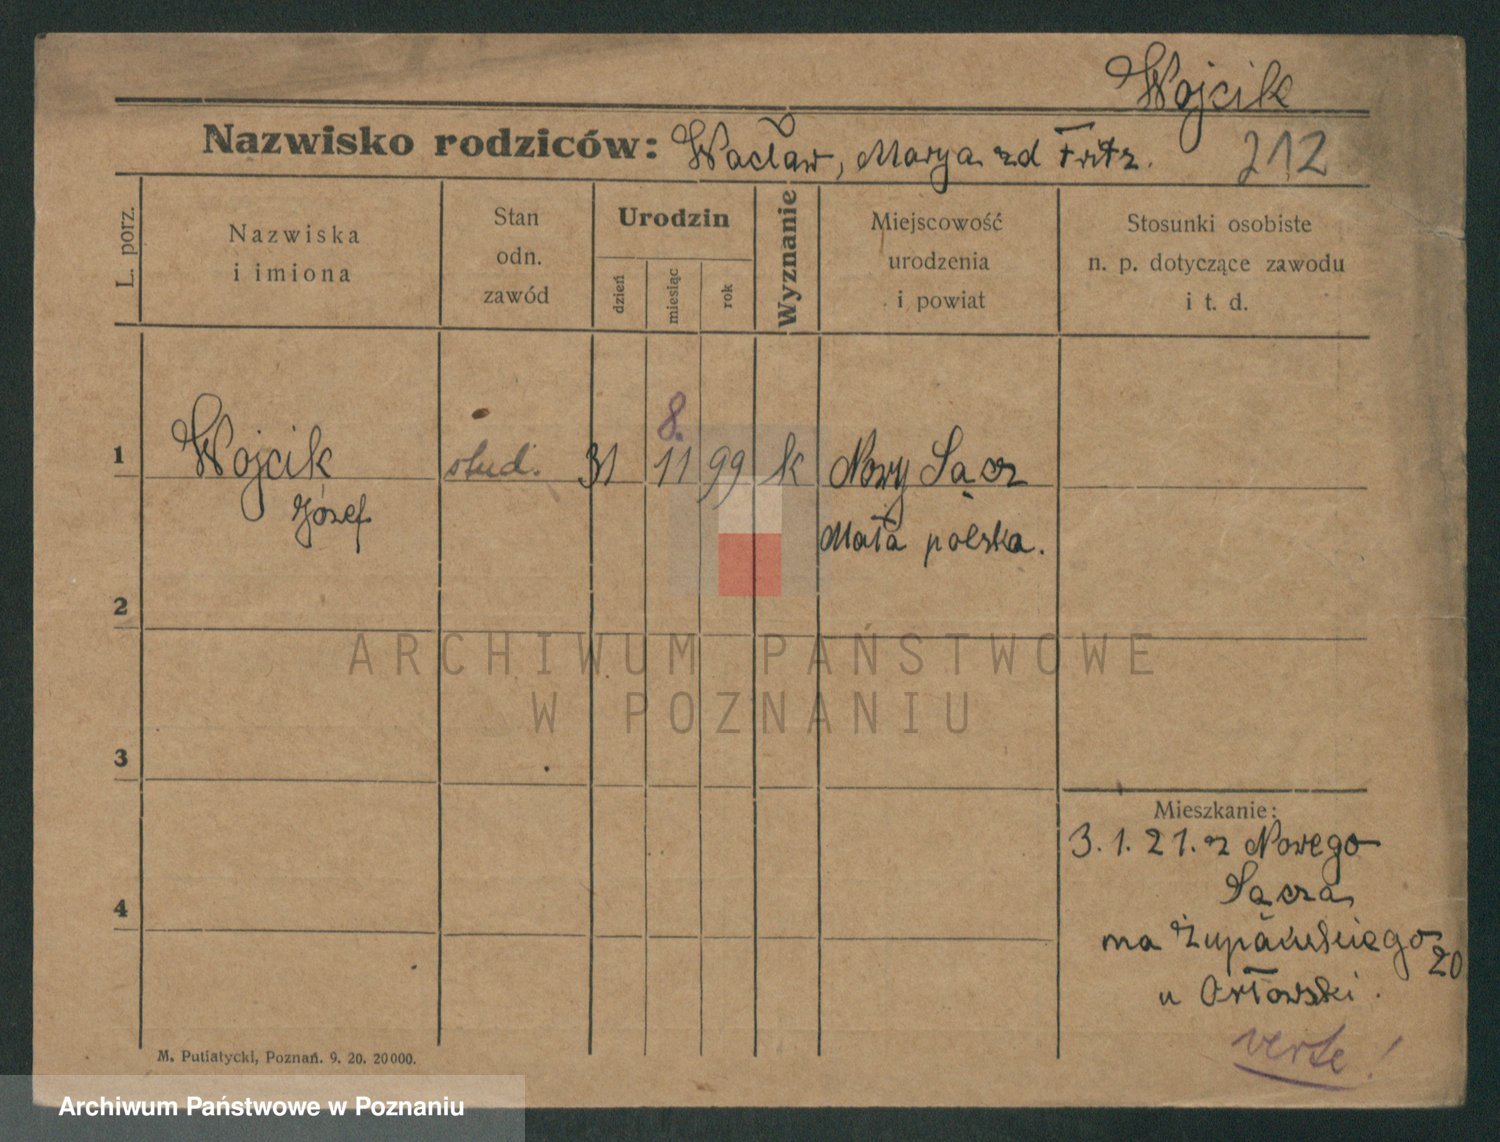 Wojcik
Nazwisko rodziców: Wacław, Marya zd Fritz.
212
L. porz.
Nazwiska
i imiona
Stan
odn.
zawód
Urodzin
dzień
miesiąc
rok
Wyznanie
Miejscowość
urodzenia
i powiat
Stosunki osobiste
n. p. dotyczące zawodu
i t. d.
8.
1 Wojcik stud. 31 11 99 k Nowy Sącz
Józef Mała polska.
2
3
4
ARCHIWUM PAŃSTWOWE
W POZNANIU
Mieszkanie:
3. 1. 21. z Nowego
Sącza
na Żupańskiego 20
u Orłowski.
verte!
M. Putiatycki, Poznań. 9. 20. 20000.
Archiwum Państwowe w Poznaniu